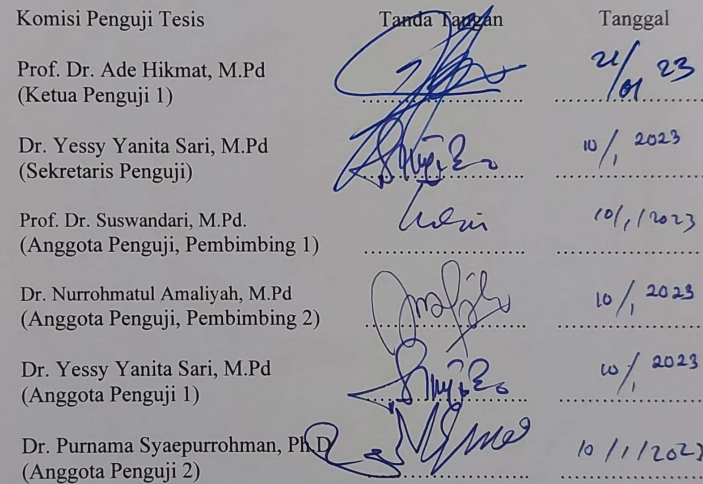 Komisi Penguji Tesis Tanda Tangan Tanggal
Prof. Dr. Ade Hikmat, M.Pd
(Ketua Penguji 1) ........................... 21/01 23
Dr. Yessy Yanita Sari, M.Pd
(Sekretaris Penguji) ........................... 10/1 2023
Prof. Dr. Suswandari, M.Pd.
(Anggota Penguji, Pembimbing 1) ........................... 10/1/2023
Dr. Nurrohmatul Amaliyah, M.Pd
(Anggota Penguji, Pembimbing 2) ........................... 10/1 2023
Dr. Yessy Yanita Sari, M.Pd
(Anggota Penguji 1) ........................... 10/1 2023
Dr. Purnama Syaepurrohman, Ph.D
(Anggota Penguji 2) ........................... 10/1/2023